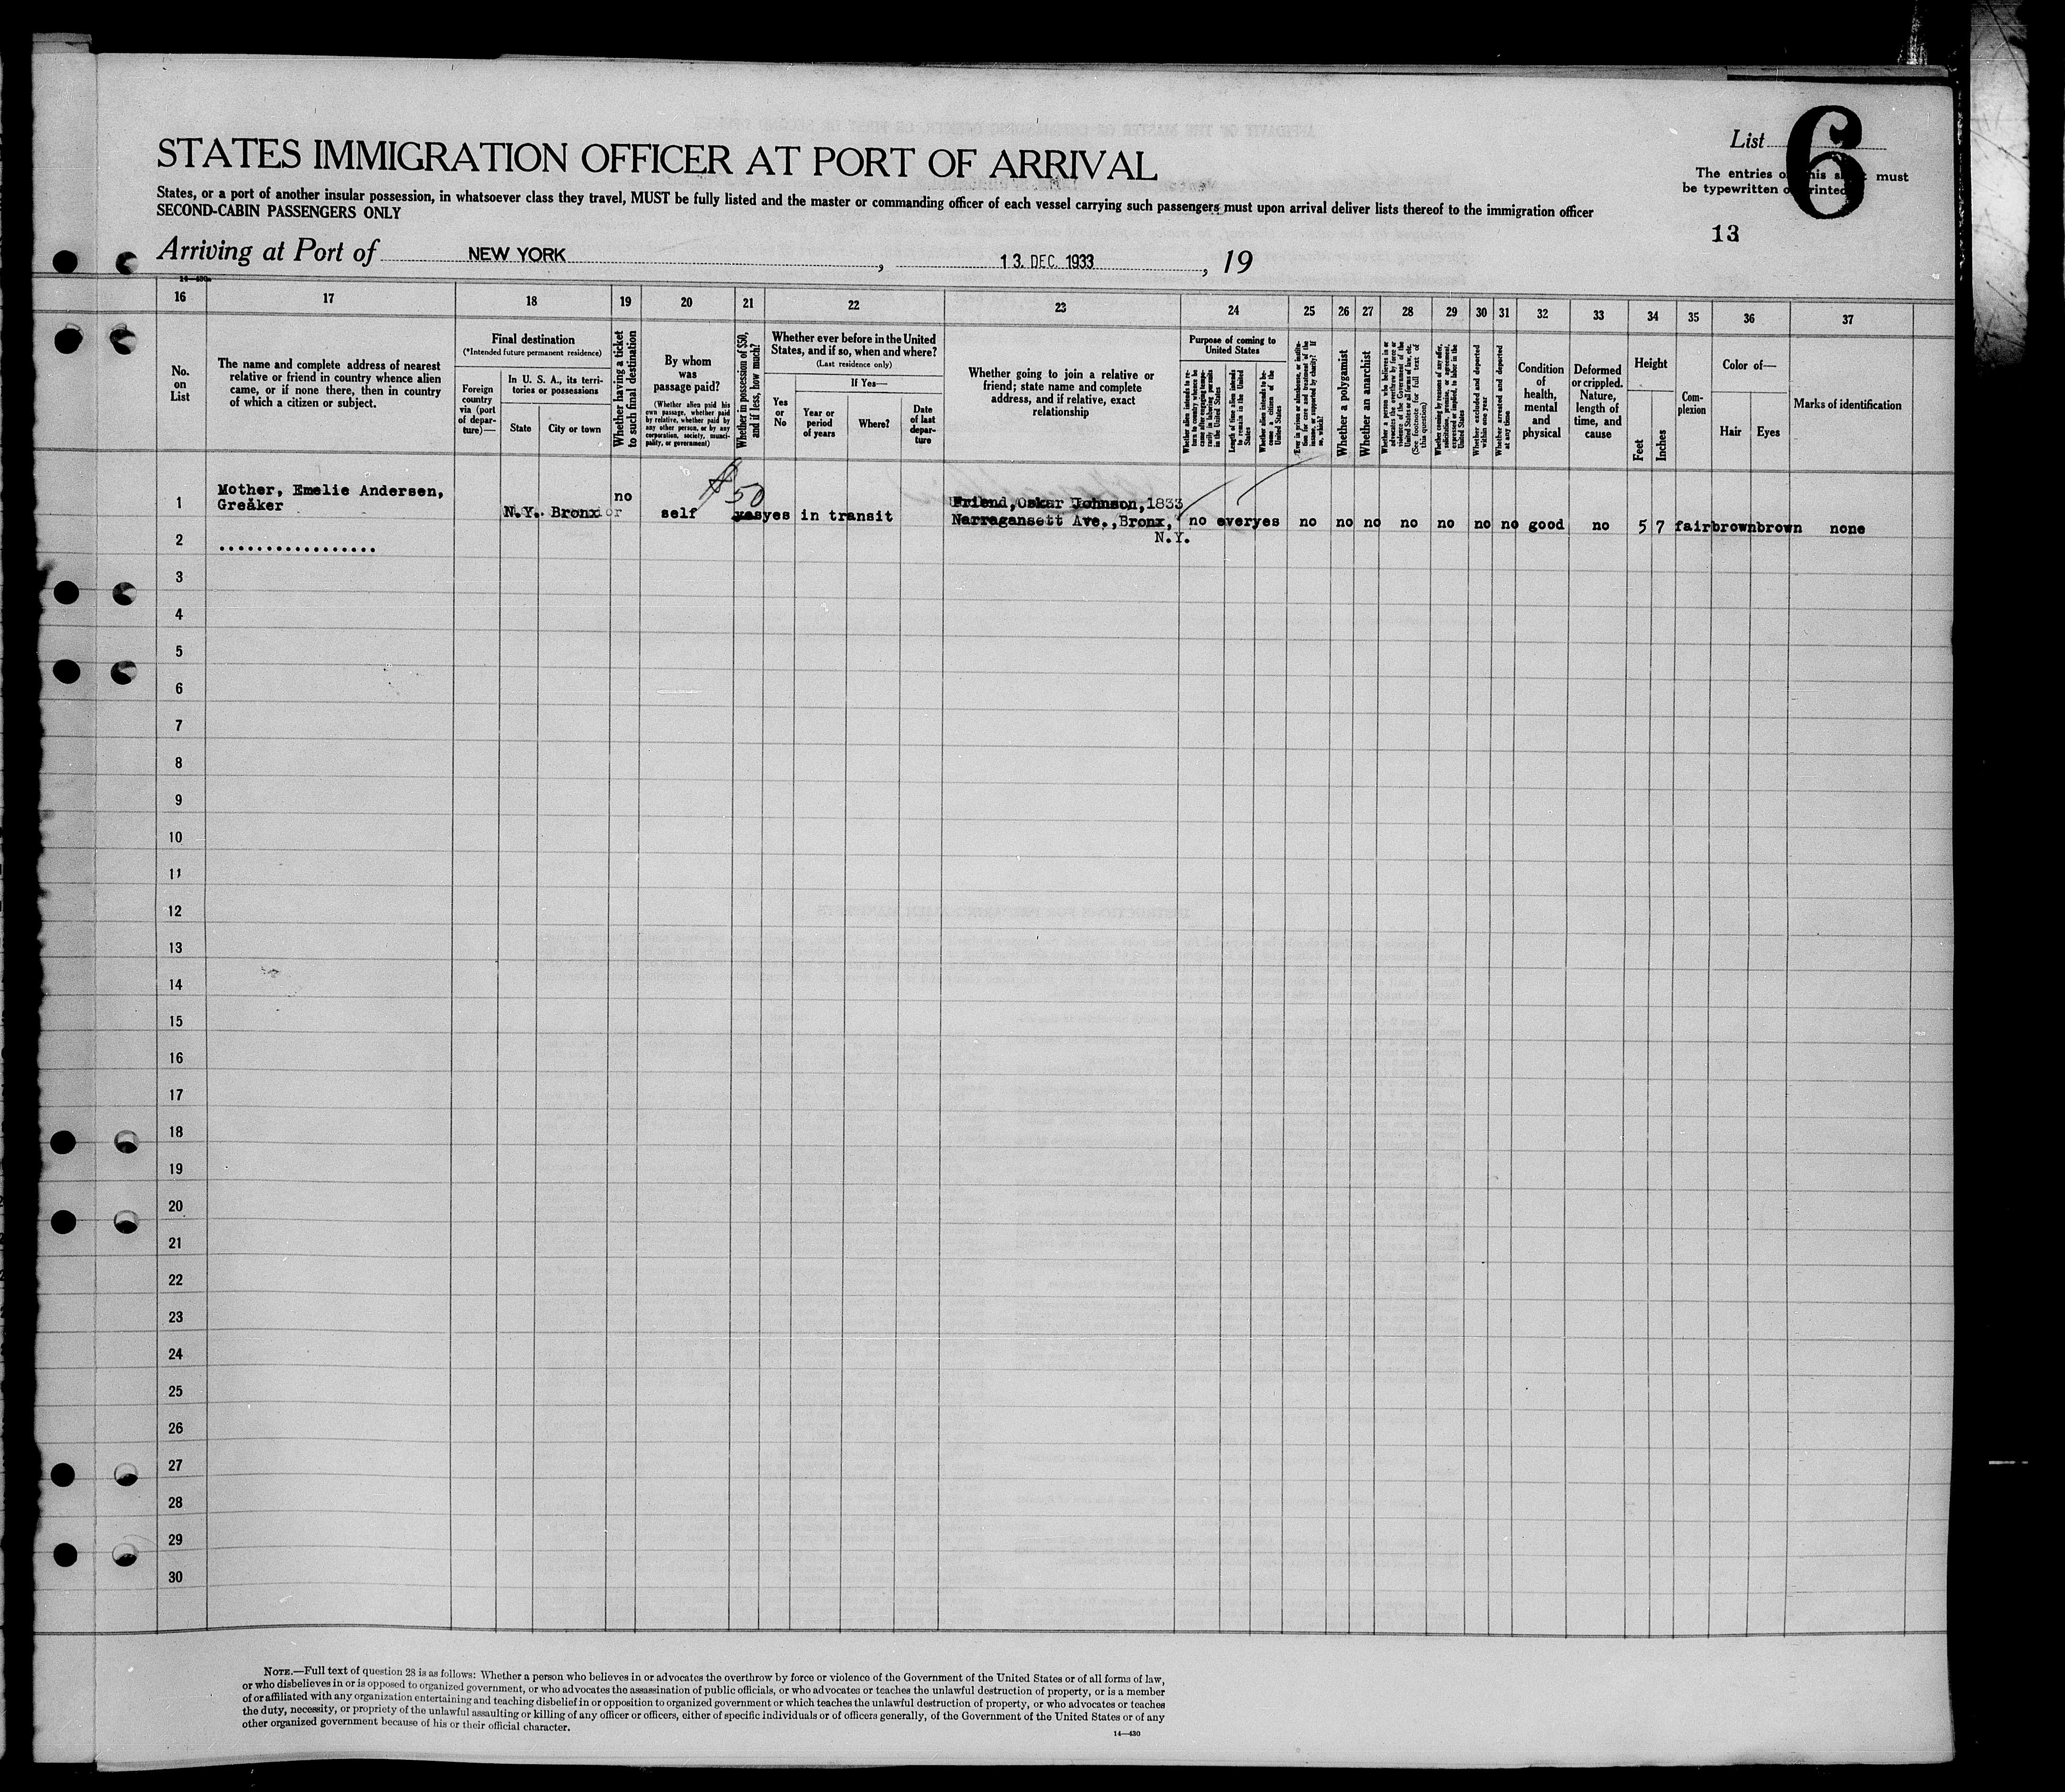 STATES IMMIGRATION OFFICER AT PORT OF ARRIVAL
List 6
The entries on this sheet must
be typewritten or printed
States, or a port of another insular possession, in whatsoever class they travel, MUST be fully listed and the master or commanding officer of each vessel carrying such passengers must upon arrival deliver lists thereof to the immigration officer
SECOND-CABIN PASSENGERS ONLY
13
Arriving at Port of NEW YORK, 13. DEC. 1933, 19
14—430
16 17 18 19 20 21 22 23 24 25 26 27 28 29 30 31 32 33 34 35 36 37
No.
on
List
The name and complete address of nearest
relative or friend in country whence alien
came, or if none there, then in country
of which a citizen or subject.
Final destination
(*Intended future permanent residence)
Foreign
country
via (port
of depar-
ture)—
In U. S. A., its terri-
tories or possessions
State
City or town
Whether having a ticket
to such final destination
By whom
was
passage paid?
(Whether alien paid his
own passage, whether paid
by relative, whether paid by
any other person, or by any
corporation, society, munici-
pality, or government)
Whether in possession of $50,
and if less, how much?
Whether ever before in the United
States, and if so, when and where?
(Last residence only)
Yes
or
No
If Yes—
Year or
period
of years
Where?
Date
of last
depar-
ture
Whether going to join a relative or
friend; state name and complete
address, and if relative, exact
relationship
Purpose of coming to
United States
Whether alien intends to re-
turn to country whence he
came after engaging tempo-
rarily in laboring pursuits
in the United States
Length of time alien intends
to remain in the United
States
Whether alien intends to be-
come a citizen of the
United States
Ever in prison or almshouse, or institu-
tion for care and treatment of the
insane, or supported by charity? If
so, which?
Whether a polygamist
Whether an anarchist
Whether a person who believes in or
advocates the overthrow by force or
violence of the Government of the
United States or all forms of law, etc.
(See footnote for full text of
this question)
Whether coming by reasons of any offer,
solicitation, promise, or agreement,
expressed or implied, to labor in the
United States
Whether excluded and deported
within one year
Whether arrested and deported
at any time
Condition
of
health,
mental
and
physical
Deformed
or crippled.
Nature,
length of
time, and
cause
Height
Feet
Inches
Com-
plexion
Color of—
Hair
Eyes
Marks of identification
1 Mother, Emelie Andersen,
Greåker
N.Y. Bronx
no
self
$50
yes
yes in transit
Friend, Oskar Johnson, 1833
Narragansett Ave., Bronx,
N.Y.
no ever yes no no no no no no no good no 5 7 fair brown brown none
2 .................
3
4
5
6
7
8
9
10
11
12
13
14
15
16
17
18
19
20
21
22
23
24
25
26
27
28
29
30
NOTE.—Full text of question 28 is as follows: Whether a person who believes in or advocates the overthrow by force or violence of the Government of the United States or of all forms of law,
or who disbelieves in or is opposed to organized government, or who advocates the assassination of public officials, or who advocates or teaches the unlawful destruction of property, or is a member
of or affiliated with any organization entertaining and teaching disbelief in or opposition to organized government or which teaches the unlawful destruction of property, or who advocates or teaches
the duty, necessity, or propriety of the unlawful assaulting or killing of any officer or officers, either of specific individuals or of officers generally, of the Government of the United States or of any
other organized government because of his or their official character.
14—430